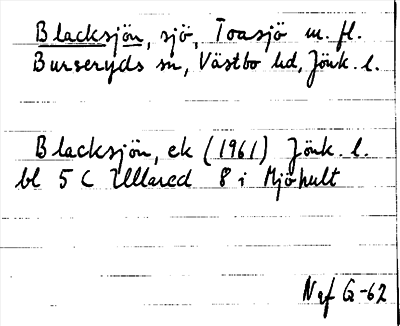 Blacksjön, sjö, Toasjö m. fl.
Burseryds sn, Västbo hd, Jönk. l.
Blacksjön, ek (1961) Jönk. l.
bl 5 C Ullared 8 i Mjöhult
Naf G-62